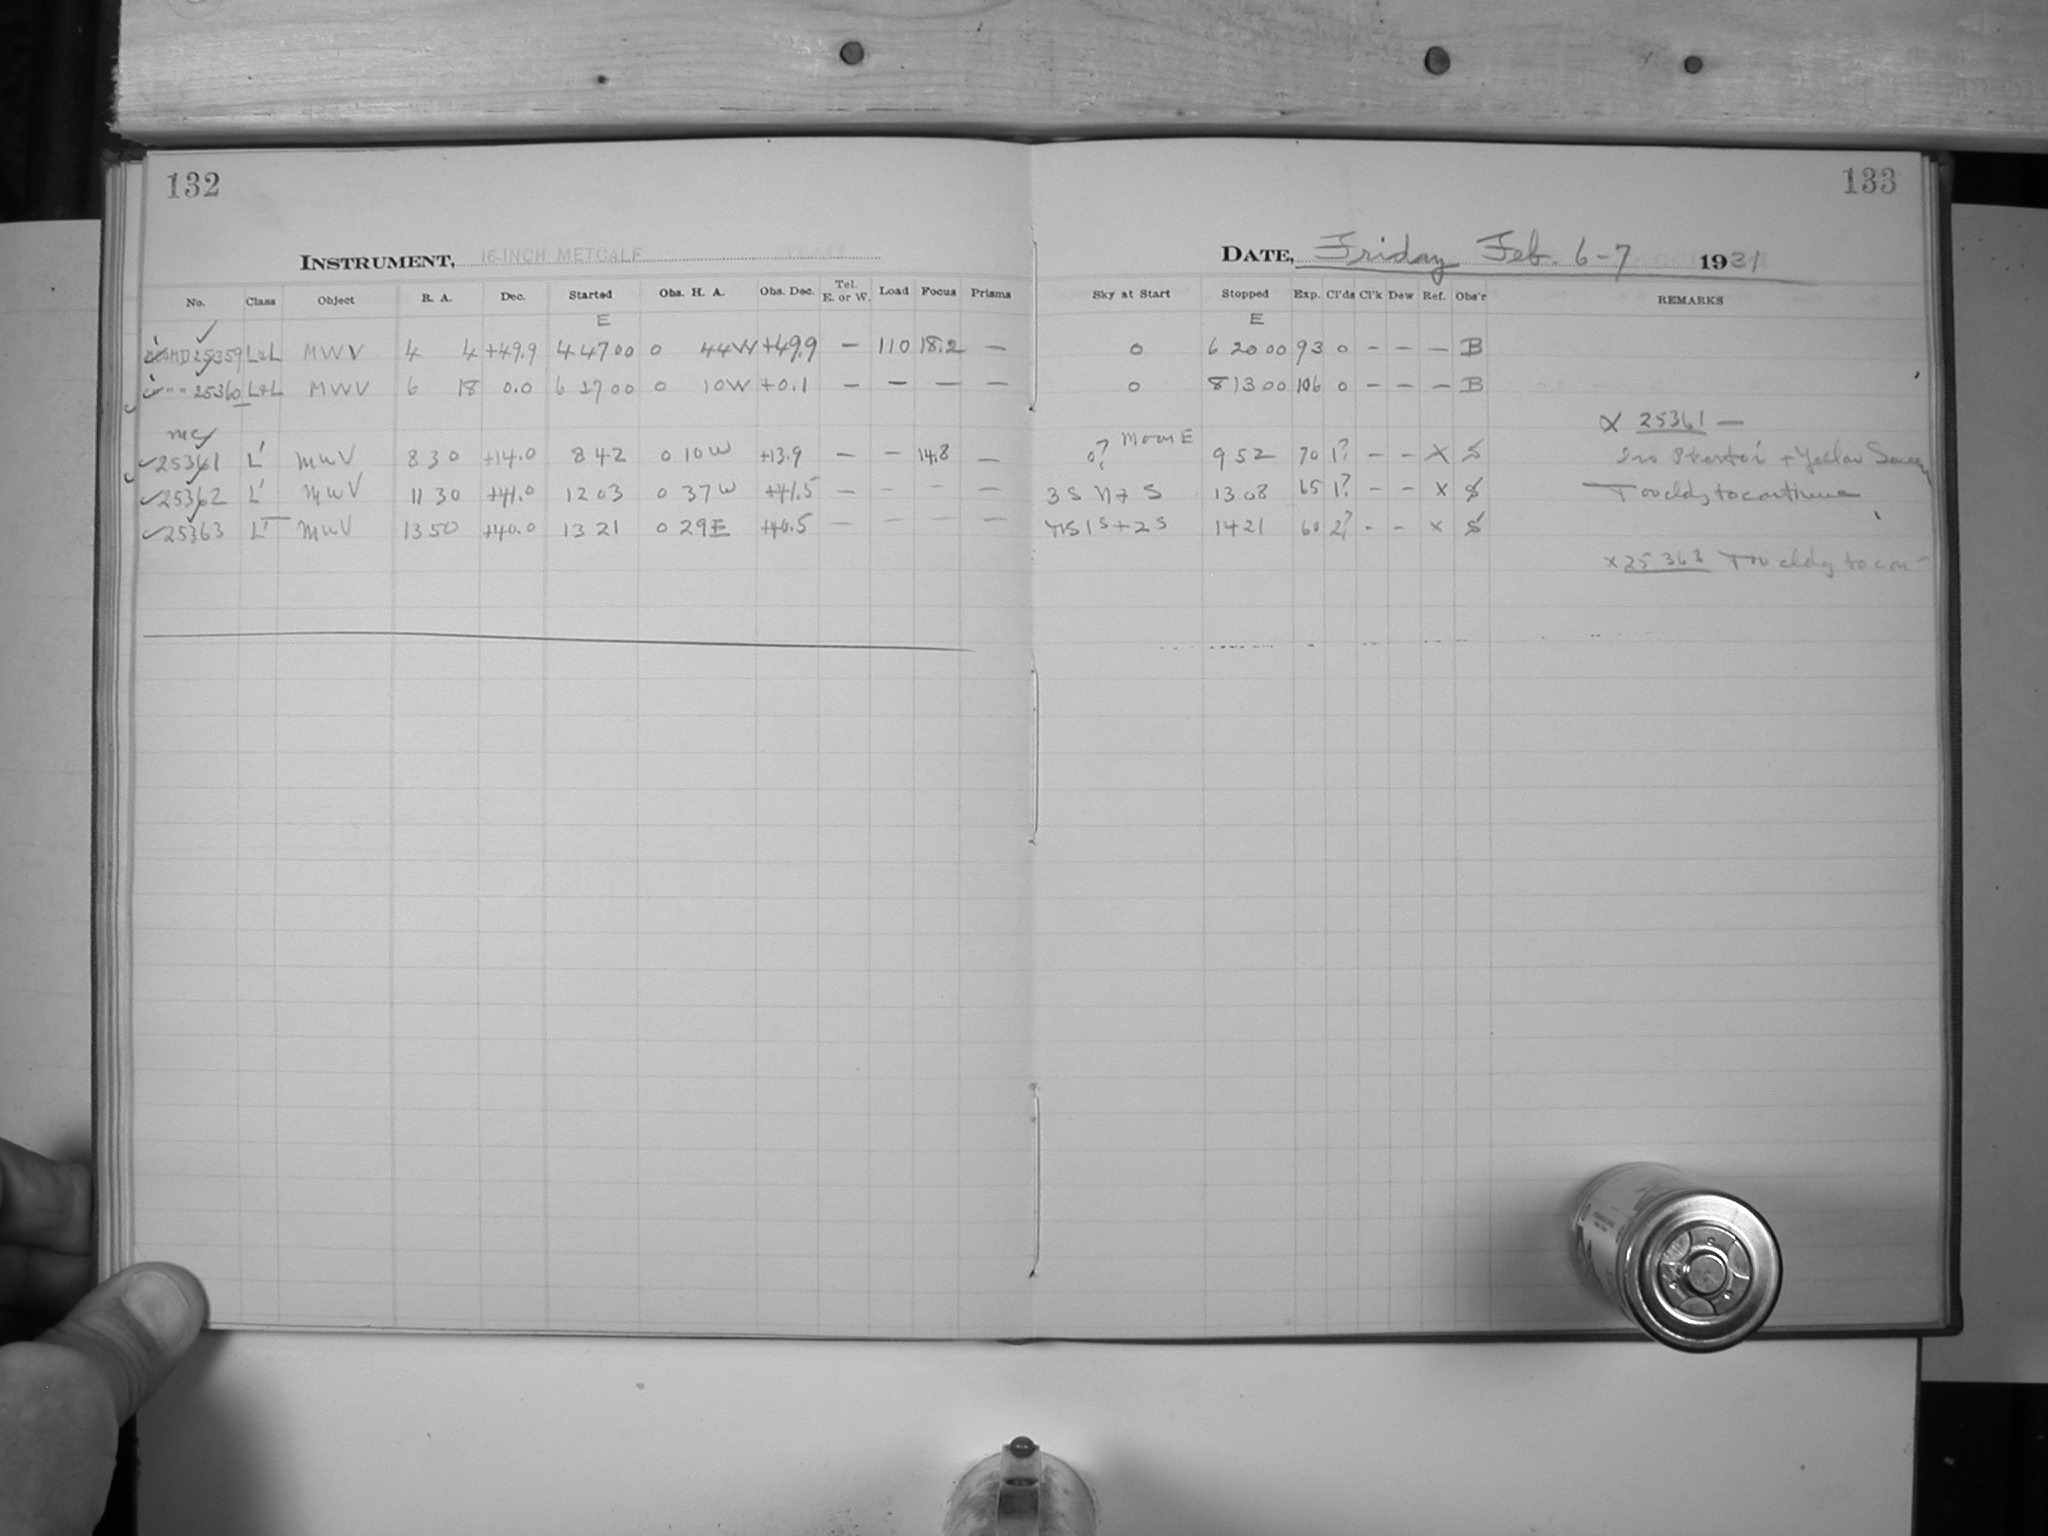 132
INSTRUMENT, 16-INCH METCALF
No. Class Object R. A. Dec. Started Obs. H. A. Obs. Dec. Tel. E. or W. Load Focus Prisms
E
25359 L+L MWV 4 4 +49.9 4 47 00 0 44W +49.9 — 110 18.2 —
25360 L+L MWV 6 18 0.0 6 27 00 0 10W +0.1 — — — —
MC
25361 L' MWV 8 30 +14.0 8 42 0 10W +13.9 — — 14.8 —
25362 L' MWV 11 30 +41.0 12 03 0 37W +41.5 — — — —
25363 L' MWV 13 50 +40.0 13 21 0 29E +40.5 — — — —
133
DATE, Friday Feb. 6-7 1931
Sky at Start Stopped Exp. Cl'ds Cl'k Dew Ref. Obs'r REMARKS
E
0 6 20 00 93 0 - - — B
0 8 13 00 106 0 - - — B
X 25361 —
0? Moon E 9 52 70 1? - - X S
+ Yellow
13 08 65 1? - - X S
Too cldy to continue
14 21 60 2? - - X S
X 25363 Too cldy to con-